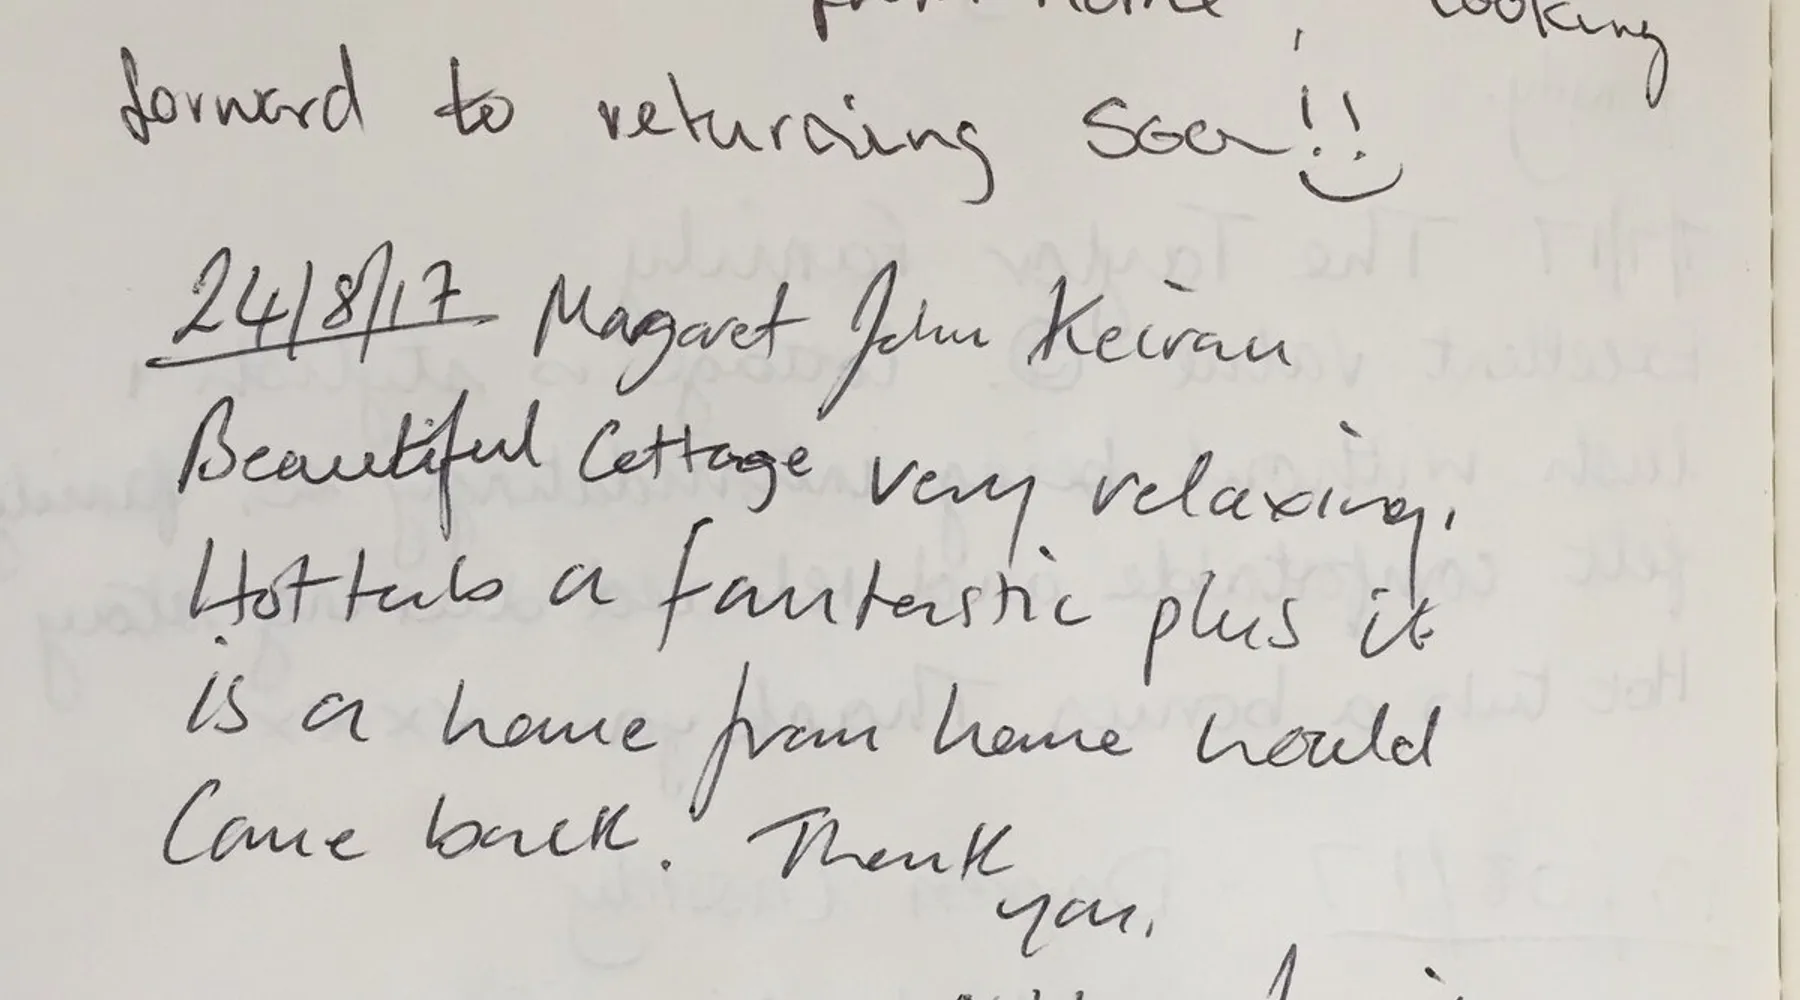 from home, looking
forward to returning soon!!
24/8/17 Magaret John Keiran
Beautiful Cottage very relaxing.
Hot tub a fantastic plus it
is a home from home would
Come back. Thank
you.